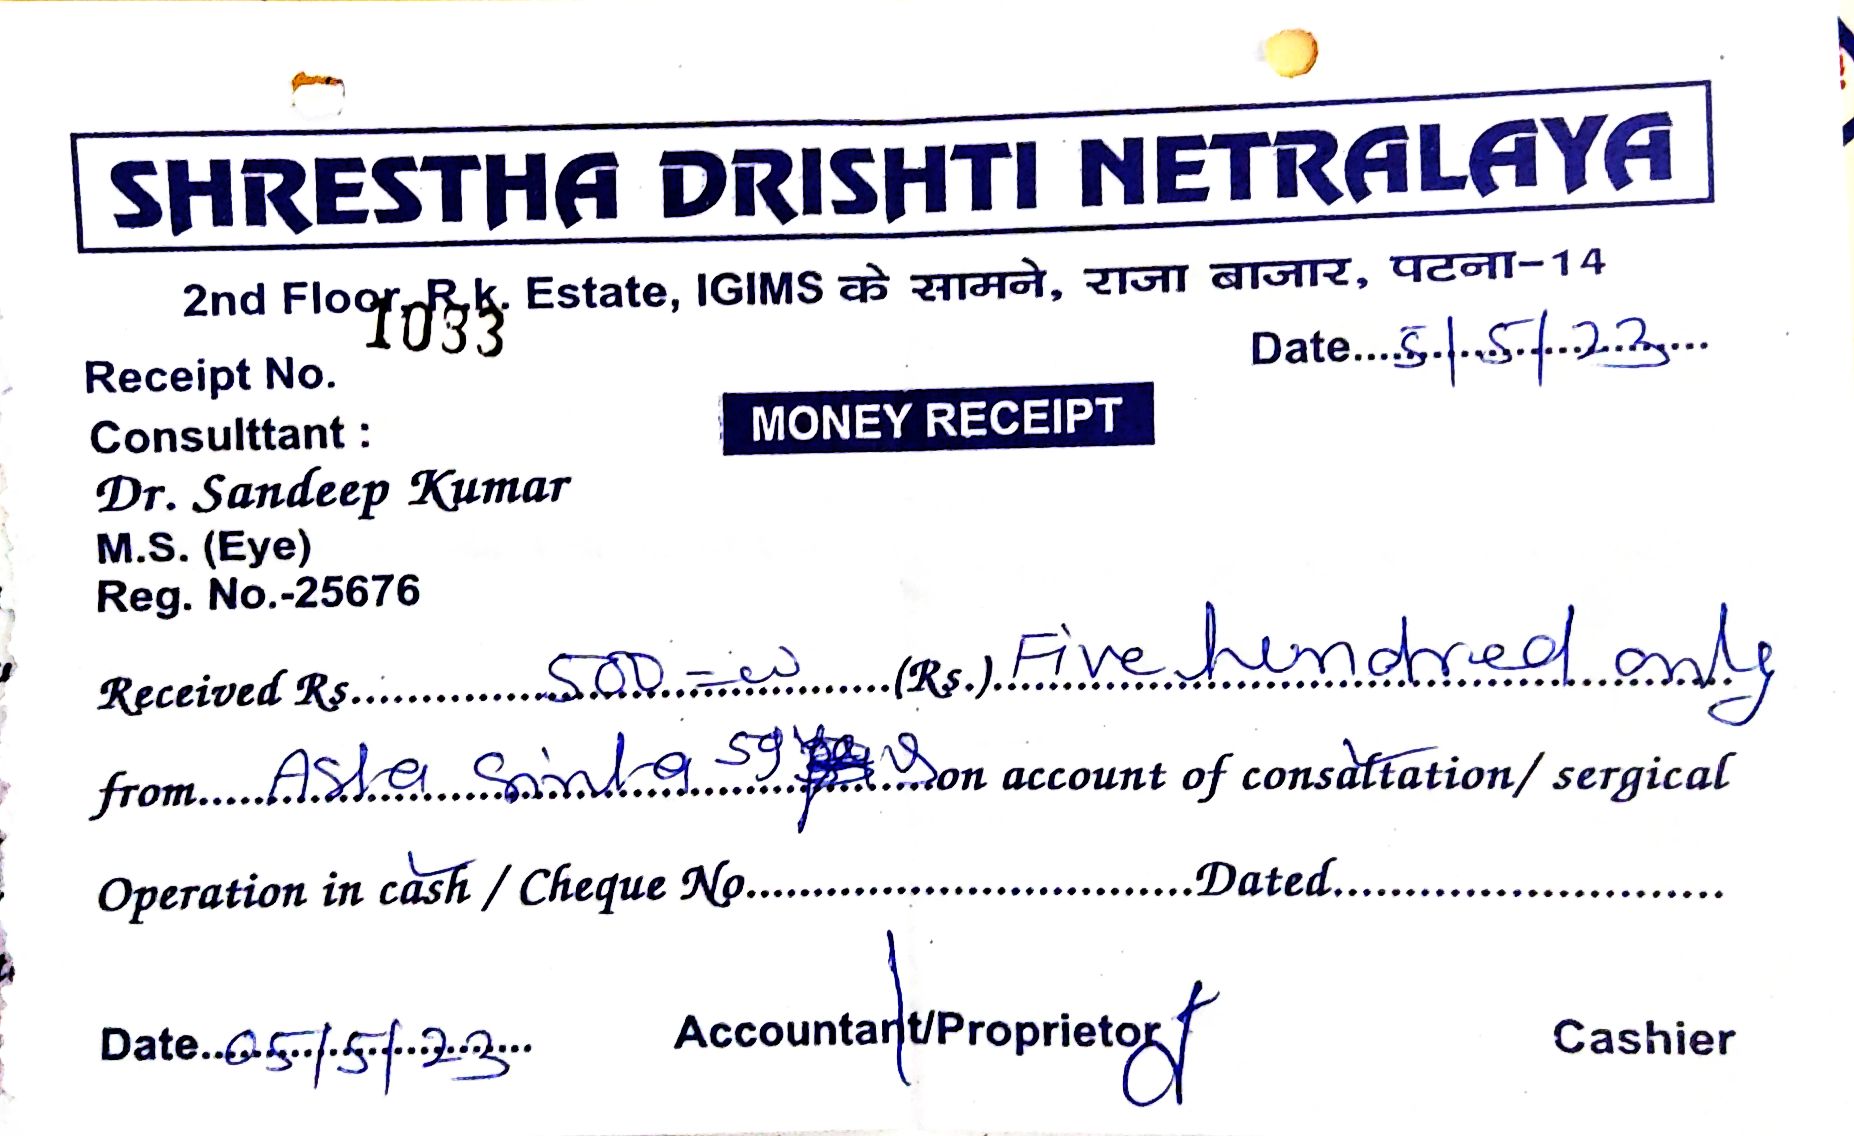 SHRESTHA DRISHTI NETRALAYA
2nd Floor, R.k. Estate, IGIMS के सामने, राजा बाजार, पटना-14
1033
Receipt No.
Date....5/5/23...
Consulttant :
MONEY RECEIPT
Dr. Sandeep Kumar
M.S. (Eye)
Reg. No.-25676
Received Rs..........500=00..........(Rs.)..Five hundred only
from.....Asha Sinha 59.....on account of consaltation/ sergical
Operation in cash / Cheque No.................................Dated.............................
Date..05/5/23...
Accountant/Proprietor
Cashier